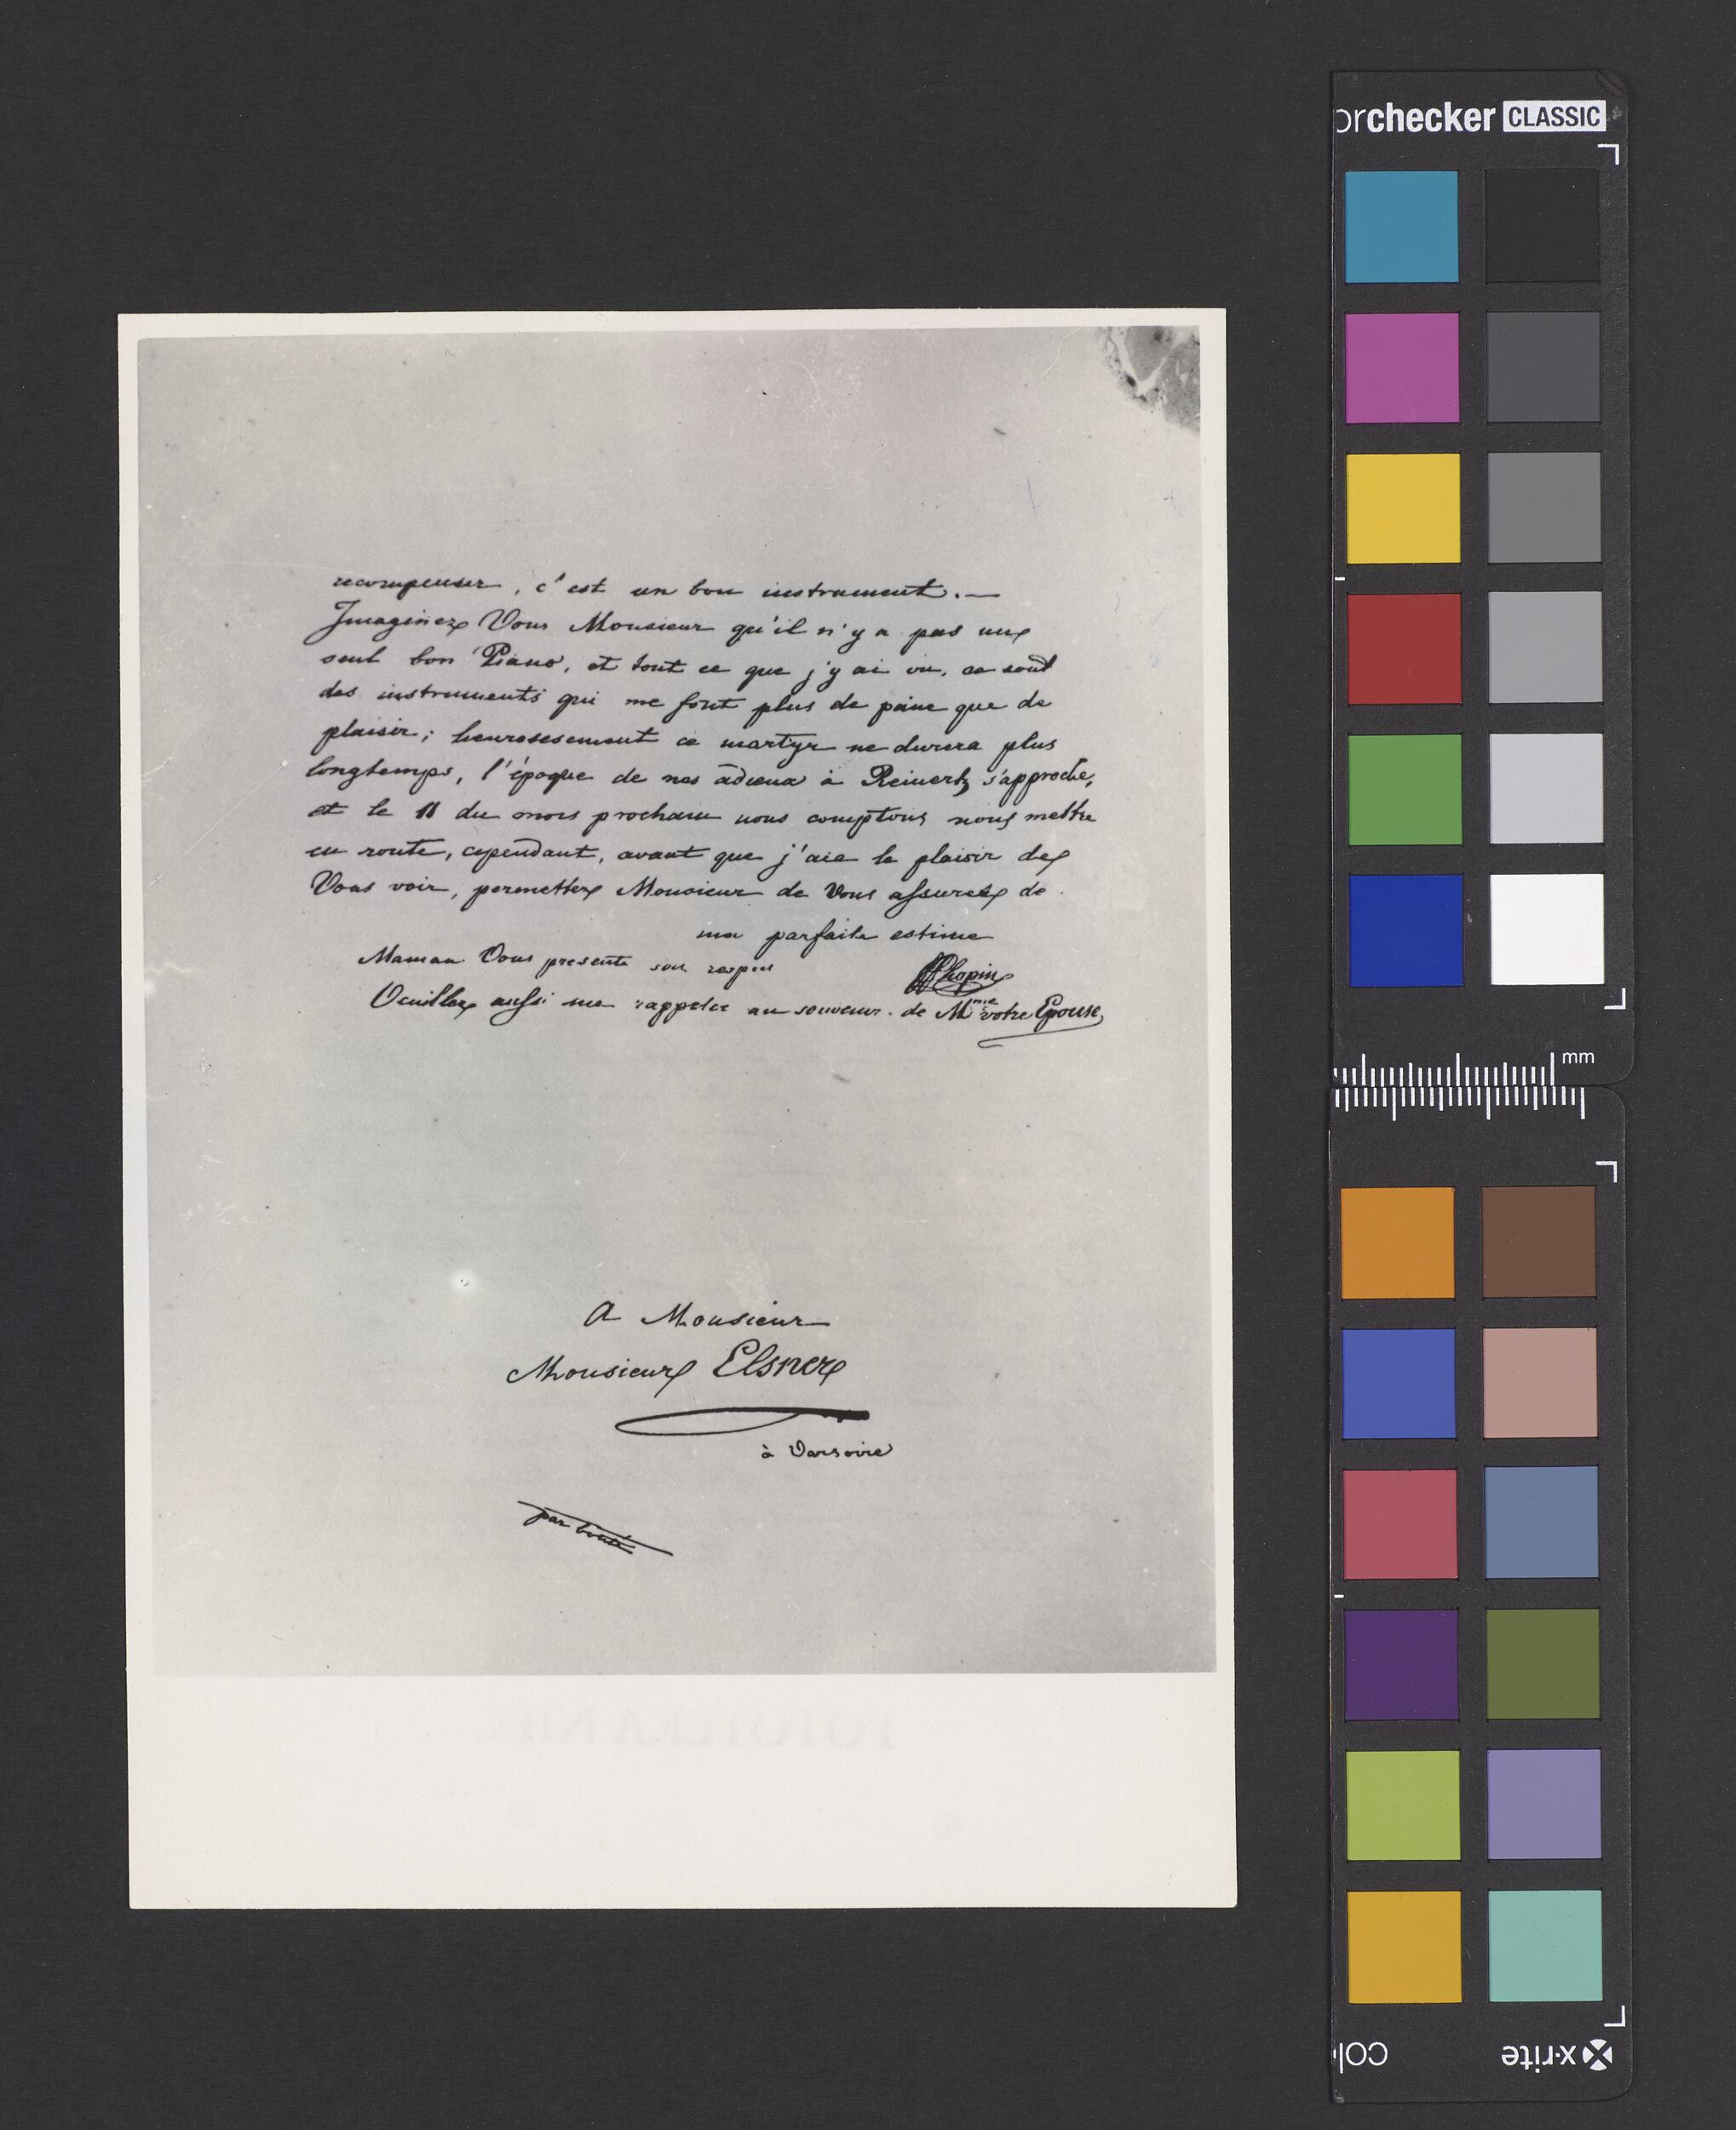 recompenser, c'est un bon instrument. —
Imaginez Vous Monsieur qu'il n'y a pas un
seul bon Piano, et tout ce que j'y ai vu, ce sont
des instruments qui me font plus de peine que de
plaisir; heuresesement ce martyr ne durera plus
longtemps, l'époque de nos adieux à Reinertz s'approche,
et le 11 du mois prochain nous comptons nous mettre
en route, cependant, avant que j'aie le plaisir de
Vous voir, permettez Monsieur de Vous assurer de
ma parfaite estime
Maman Vous presente son respect
FFChopin
Veuillez aussi me rappeler au souvenir de Mme votre Epouse
A Monsieur
Monsieur Elsner
à Varsovie
par bonté
orchecker CLASSIC
mm
x-rite
col